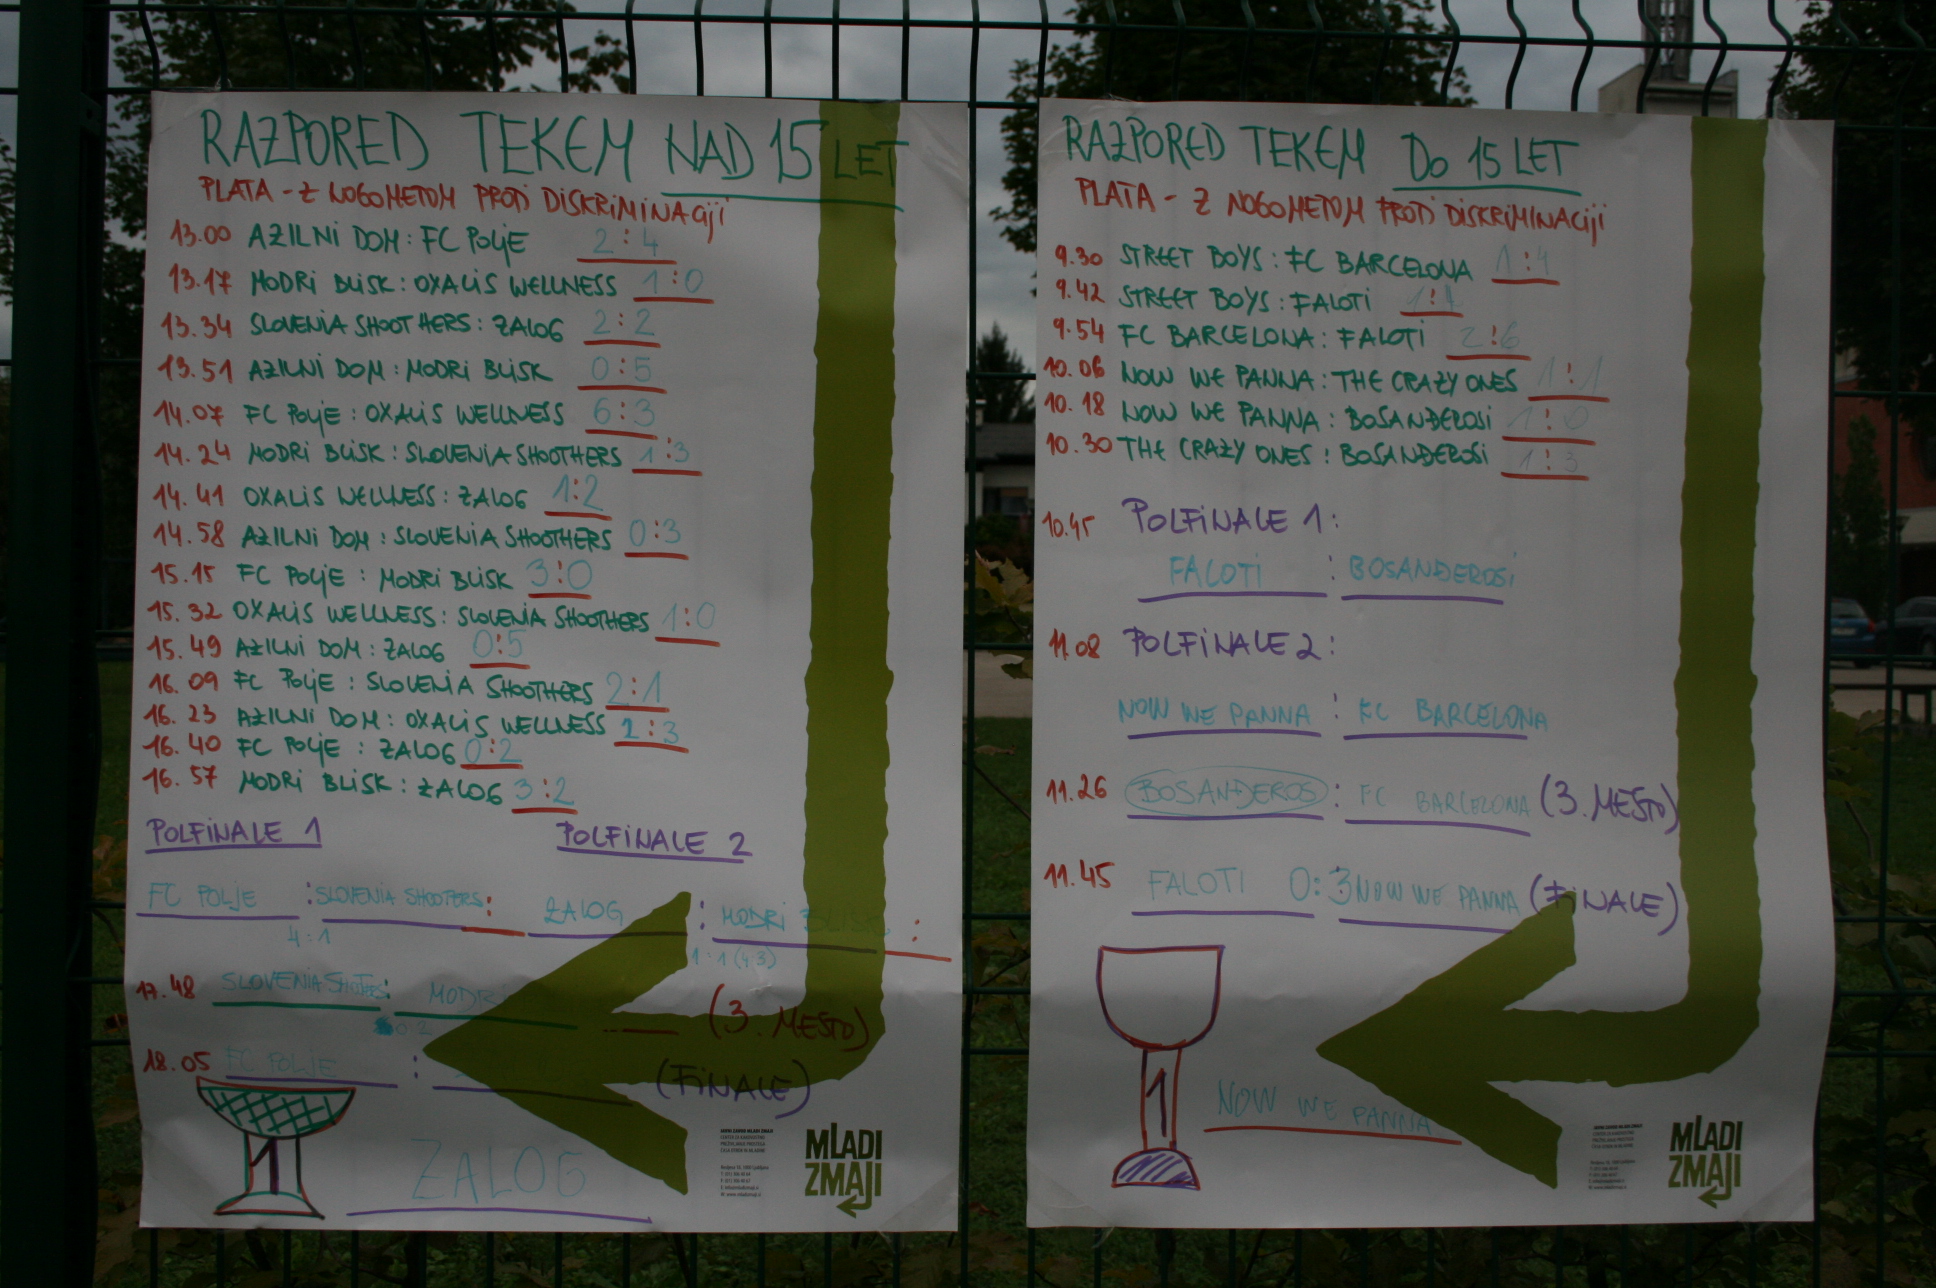 RAZPORED TEKEM NAD 15 LET
PLATA - Z NOGOMETOM PROTI DISKRIMINACIJI
13.00 AZILNI DOM : FC POLJE 2:4
13.17 MODRI BLISK : OXALIS WELLNESS 1:0
13.34 SLOVENIA SHOOTHERS : ZALOG 2:2
13.51 AZILNI DOM : MODRI BLISK 0:5
14.07 FC POLJE : OXALIS WELLNESS 6:3
14.24 MODRI BLISK : SLOVENIA SHOOTHERS 1:3
14.41 OXALIS WELLNESS : ZALOG 1:2
14.58 AZILNI DOM : SLOVENIA SHOOTHERS 0:3
15.15 FC POLJE : MODRI BLISK 3:0
15.32 OXALIS WELLNESS : SLOVENIA SHOOTHERS 1:0
15.49 AZILNI DOM : ZALOG 0:5
16.09 FC POLJE : SLOVENIA SHOOTHERS 2:1
16.23 AZILNI DOM : OXALIS WELLNESS :3
16.40 FC POLJE : ZALOG 0:2
16.57 MODRI BLISK : ZALOG 3:2
POLFINALE 1 POLFINALE 2
FC POLJE : SLOVENIA SHOOTERS : ZALOG : MODRI BLISK :
4:1 1:1 (4:3)
17.48 SLOVENIA : MODRI (3. MESTO)
0 2
18.05 FC POLJE : (FINALE)
1
ZALOG
MLADI
ZMAJI
RAZPORED TEKEM DO 15 LET
PLATA - Z NOGOMETOM PROTI DISKRIMINACIJI
9.30 STREET BOYS : FC BARCELONA 1:4
9.42 STREET BOYS : FALOTI 1:
9.54 FC BARCELONA : FALOTI 2:6
10.06 NOW WE PANNA : THE CRAZY ONES 1:1
10.18 NOW WE PANNA : BOSANĐEROSI 1:0
10.30 THE CRAZY ONES : BOSANĐEROSI 1:3
10.45 POLFINALE 1:
FALOTI : BOSANĐEROSI
11.08 POLFINALE 2:
NOW WE PANNA : FC BARCELONA
11.26 BOSANĐEROSI : FC BARCELONA (3. MESTO)
11.45 FALOTI 0:3 NOW WE PANNA (FINALE)
1
NOW WE PANNA
MLADI
ZMAJI